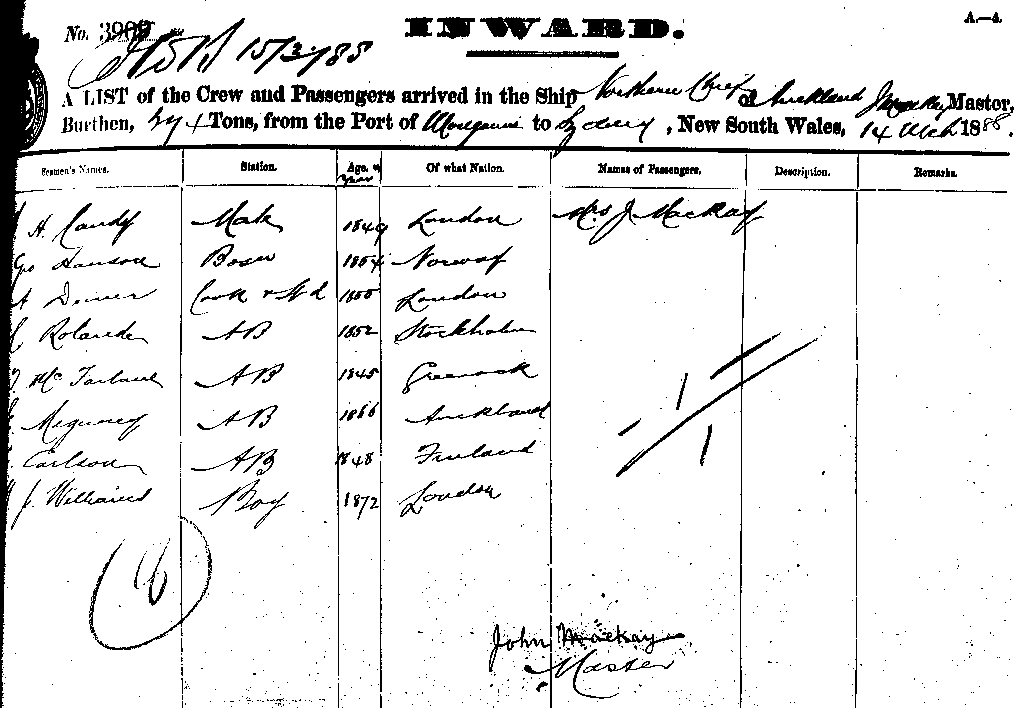 INWARD.
A.—4.
No. 3909
15/3/88
A LIST of the Crew and Passengers arrived in the Ship Northern Chief of Auckland J Mackay, Master,
Burthen, Tons, from the Port of to Sydney, New South Wales, 14 Mch 1888.
Seamen's Names. Station. Age. Of what Nation. Names of Passengers. Description. Remarks.
year
H. Candy Mate 1849 London Mrs J. Mackay
Geo Hanson Bosn 1854 Norway
London
Rolander AB 1852 Stockholm
McFarlane AB 1845 Greenock
AB 1866 Auckland
Carlson AB 1848 Finland
J. Williams Boy 1872 London
John Mackay
Master